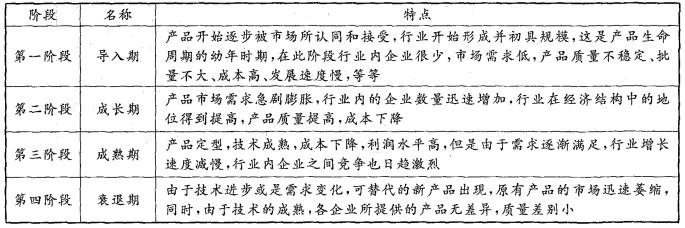 阶段 名称 特点
产品开始逐步被市场所认同和接受,行业开始形成并初具规模,这是产品生命
第一阶段 导入期 周期的幼年时期,在此阶段行业内企业很少,市场需求低,产品质量不稳定、批
量不大、成本高、发展速度慢,等等
第二阶段 成长期 产品市场需求急剧膨胀,行业内的企业数量迅速增加,行业在经济结构中的地
位得到提高,产品质量提高,成本下降
第三阶段 成熟期 产品定型,技术成熟,成本下降,利润水平高,但是由于需求逐渐满足,行业增长
速度减慢,行业内企业之间竞争也日趋激烈
第四阶段 衰退期 由于技术进步或是需求变化,可替代的新产品出现,原有产品的市场迅速萎缩,
同时,由于技术的成熟,各企业所提供的产品无差异,质量差别小